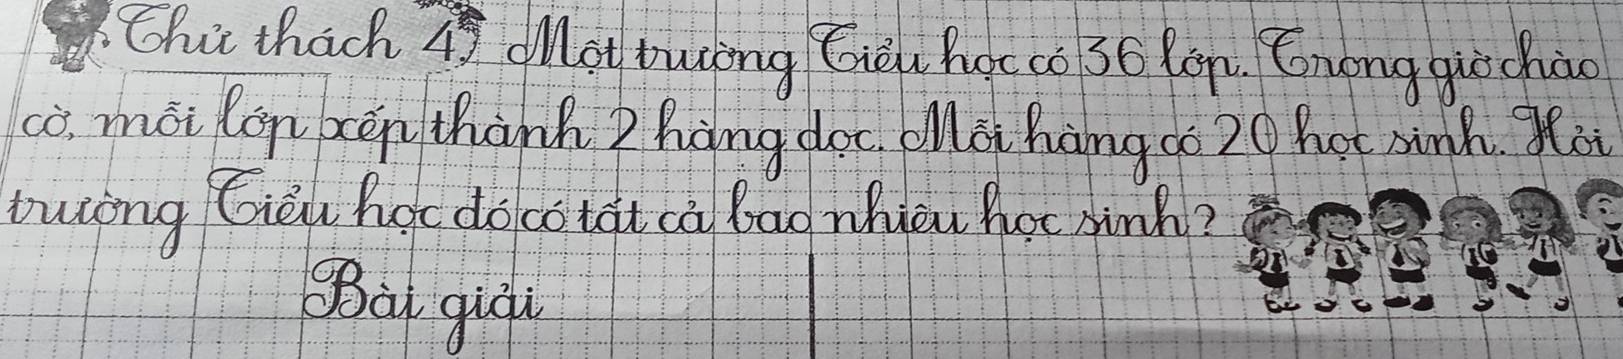 Thử thách 4) Một trường Tiểu học có 36 lớp. Trong giờ chào
cờ, mỗi lớp xếp thành 2 hàng dọc. Mỗi hàng có 20 học sinh. Hỏi
trường Tiểu học đó có tất cả bao nhiêu học sinh?
Bài giải